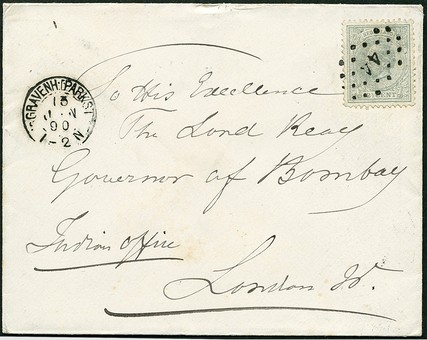 'SGRAVENH:(PARKST)
13
JUN
90
1-2N
44
To His Excellence
The Lord Reay
Governor of Bombay
Indian Office
London W.